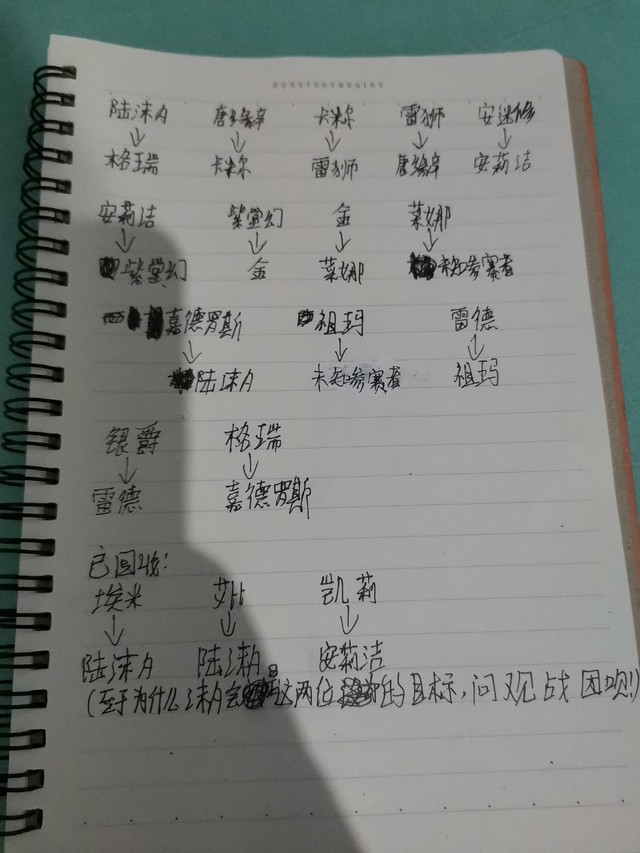 陆沫月 唐缘辛 卡米尔 雷狮 安迷修
↓ ↓ ↓ ↓ ↓
格瑞 卡米尔 雷狮 唐缘辛 安莉洁
安莉洁 紫堂幻 金 莱娜
↓ ↓ ↓ ↓
紫堂幻 金 莱娜 未知参赛者
嘉德罗斯 祖玛 雷德
↓ ↓ ↓
陆沫月 未知参赛者 祖玛
银爵 格瑞
↓ ↓
雷德 嘉德罗斯
已回收:
埃米 艾比 凯莉
↓ ↓ ↓
陆沫月 陆沫月 安莉洁
(至于为什么沫月会是这两位的目标,问观战团呗!)